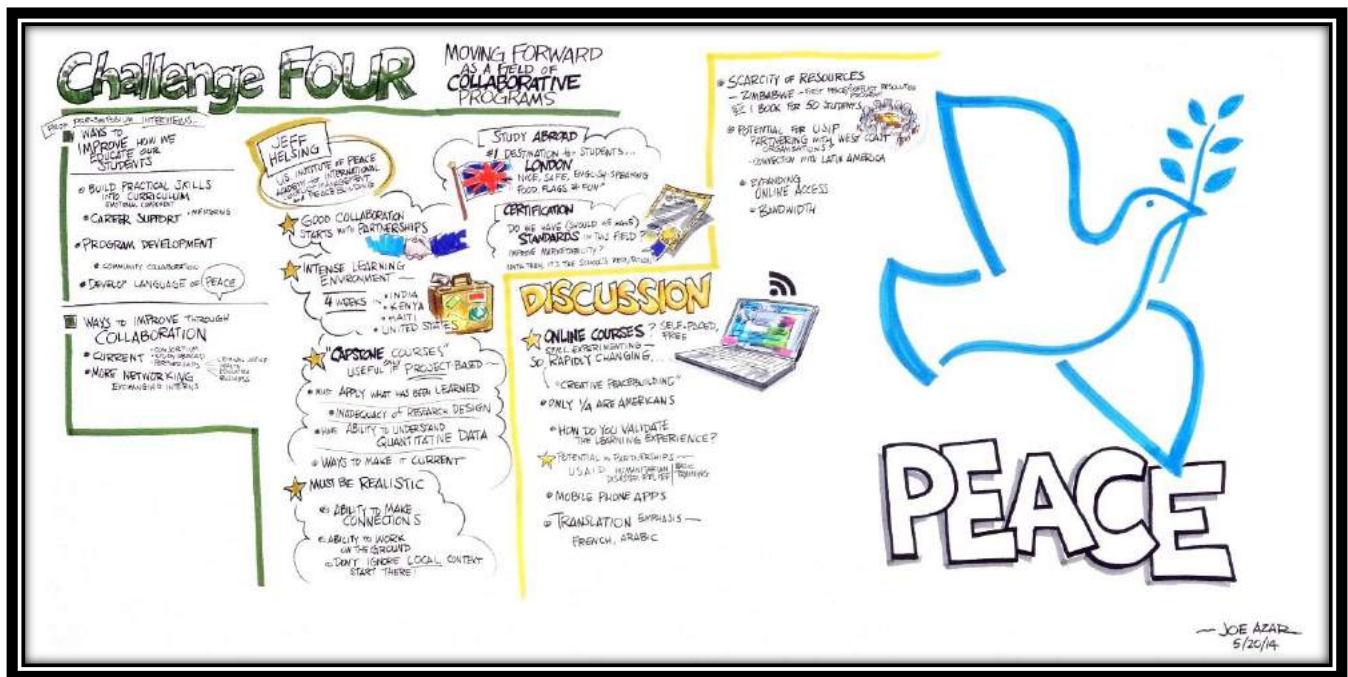 Challenge FOUR
MOVING FORWARD
AS A FIELD OF
COLLABORATIVE
PROGRAMS
INTERVIEWS...
WAYS TO
IMPROVE HOW WE
EDUCATE OUR
STUDENTS
BUILD PRACTICAL SKILLS
INTO CURRICULUM
EMOTIONAL COMPONENT
CAREER SUPPORT • MENTORING
PROGRAM DEVELOPMENT
COMMUNITY COLLABORATION
DEVELOP LANGUAGE OF PEACE
WAYS TO IMPROVE THROUGH
COLLABORATION
CURRENT • CONSORTIUM
• STUDY ABROAD
• PARTNERSHIPS
MORE NETWORKING
EXCHANGING INTERNS
HEALTH
EDUCATION
BUSINESS
JEFF
HELSING
U.S. INSTITUTE OF PEACE
ACADEMY FOR INTERNATIONAL
CONFLICT MANAGEMENT
AND PEACEBUILDING
GOOD COLLABORATION
STARTS WITH PARTNERSHIPS
INTENSE LEARNING
ENVIRONMENT —
4 WEEKS IN • INDIA
• KENYA
• HAITI
• UNITED STATES
"CAPSTONE COURSES"
USEFUL IF ONLY PROJECT-BASED —
MUST APPLY WHAT HAS BEEN LEARNED
INADEQUACY OF RESEARCH DESIGN
HAVE ABILITY TO UNDERSTAND
QUANTITATIVE DATA
WAYS TO MAKE IT CURRENT
MUST BE REALISTIC
ABILITY TO MAKE
CONNECTIONS
ABILITY TO WORK
ON THE GROUND
DON'T IGNORE LOCAL CONTEXT
START THERE!
STUDY ABROAD
#1 DESTINATION for STUDENTS...
LONDON
NICE, SAFE, ENGLISH-SPEAKING
FOOD, FLAGS & FUN"
CERTIFICATION
DO WE HAVE (SHOULD WE HAVE)
STANDARDS IN THIS FIELD?
IMPROVE MARKETABILITY?
UNTIL THEN, IT'S THE SCHOOL'S REPUTATION
DISCUSSION
ONLINE COURSES? SELF-PACED,
FREE
STILL EXPERIMENTING —
SO RAPIDLY CHANGING...
"CREATIVE PEACEBUILDING"
ONLY 1/4 ARE AMERICANS
HOW DO YOU VALIDATE
THE LEARNING EXPERIENCE?
POTENTIAL IN PARTNERSHIPS —
USAID HUMANITARIAN
DISASTER RELIEF
BASIC
TRAINING
MOBILE PHONE APPS
TRANSLATION EMPHASIS —
FRENCH, ARABIC
SCARCITY OF RESOURCES
— ZIMBABWE — FIRST PEACE/CONFLICT RESOLUTION
PROGRAM
1 BOOK FOR 50 STUDENTS
POTENTIAL FOR USIP
PARTNERING WITH WEST COAST
ORGANIZATIONS?
- CONNECTION WITH LATIN AMERICA
EXPANDING
ONLINE ACCESS
BANDWIDTH
PEACE
— JOE AZAR
5/20/14